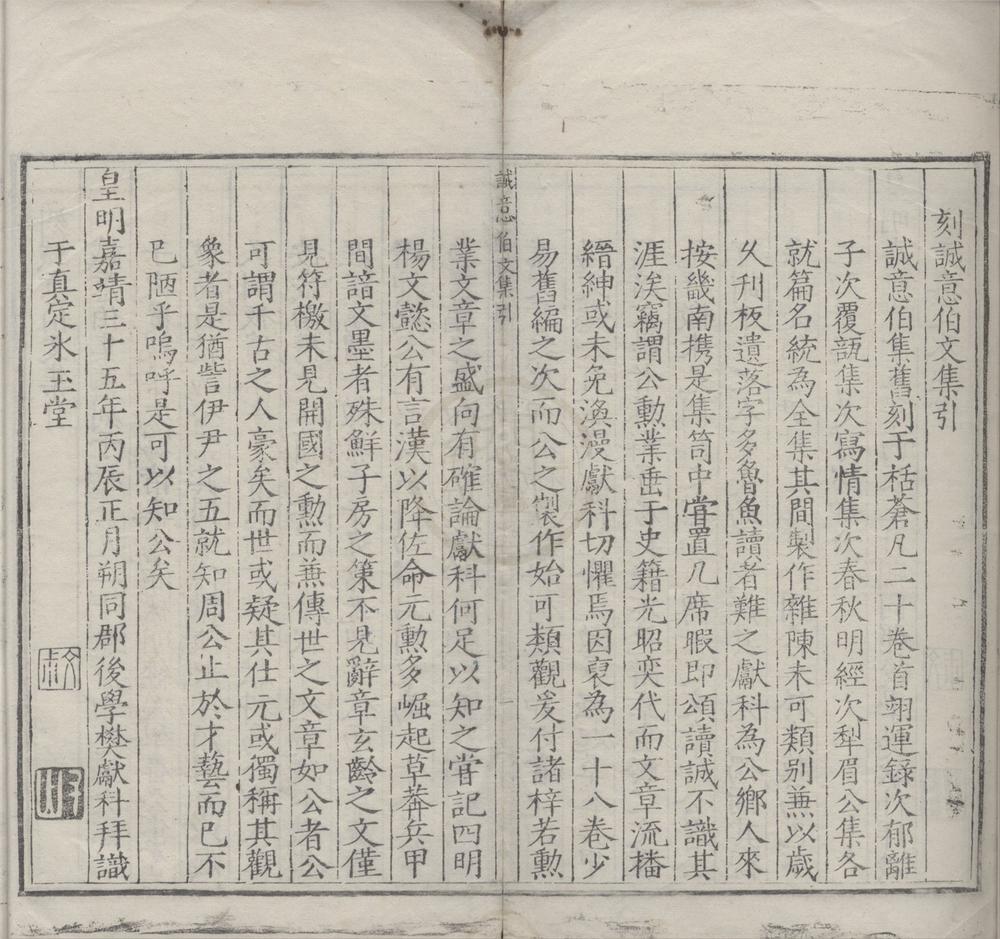 刻誠意伯文集引
誠意伯集舊刻于栝蒼凡二十卷首翊運録次郁離
子次覆瓿集次寫情集次春秋明經次犁眉公集各
就篇名統為全集其間製作雜陳未可類别兼以歲
乆刊板遺落字多魯魚讀者難之獻科為公鄉人來
按畿南携是集笥中甞置几席暇即頌讀誠不識其
涯涘竊謂公勳業垂于史籍光昭奕代而文章流播
縉紳或未免漶漫獻科切懼焉因裒為一十八卷少
易舊編之次而公之製作始可類觀爰付諸梓若勲
誠意伯文集引
一
業文章之盛向有確論獻科何足以知之甞記四明
楊文懿公有言漢以降佐命元勲多崛起草莽兵甲
間諳文墨者殊鮮子房之策不見辭章玄齡之文僅
見符檄未見開國之勲而兼傳世之文章如公者公
可謂千古之人豪矣而世或疑其仕元或獨稱其觀
象者是猶訾伊尹之五就知周公止於才藝而已不
已陋乎嗚呼是可以知公矣
皇明嘉靖三十五年丙辰正月朔同郡後學樊獻科拜識
于直定氷玉堂